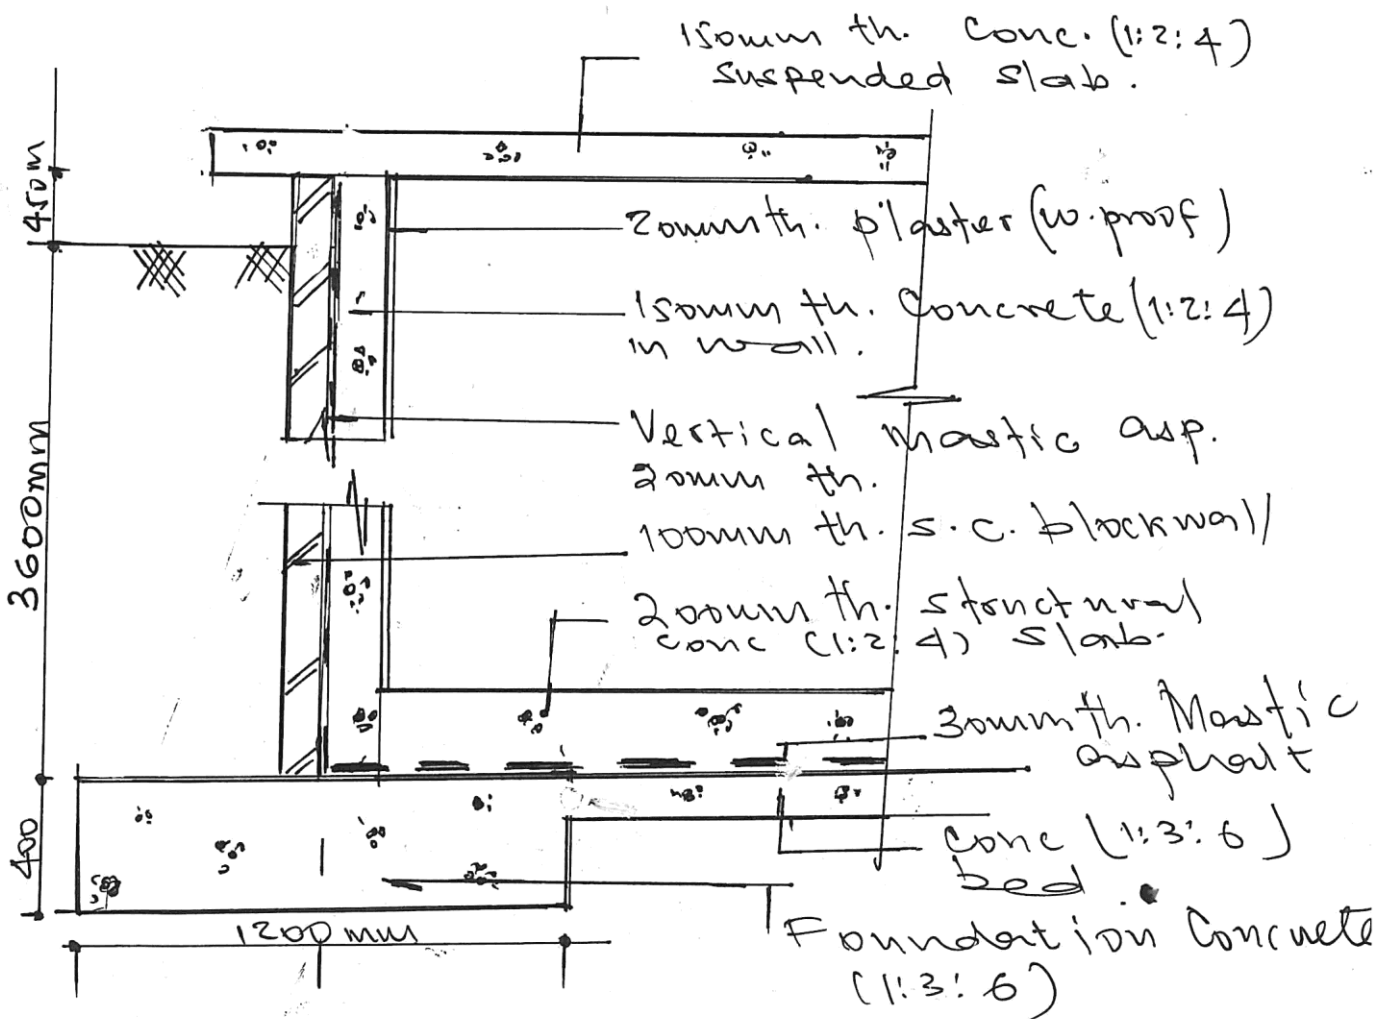 150mm th. Conc. (1:2:4)
suspended slab.
450m
20mm th. plaster (w.proof)
150mm th. Concrete (1:2:4)
in wall.
Vertical mastic asp.
20mm th.
100mm th. s.c. blockwall
3600mm
200mm th. structural
conc (1:2:4) slab.
30mm th. Mastic
asphalt
400
conc (1:3:6)
bed
1200mm
Foundation Concrete
(1:3:6)